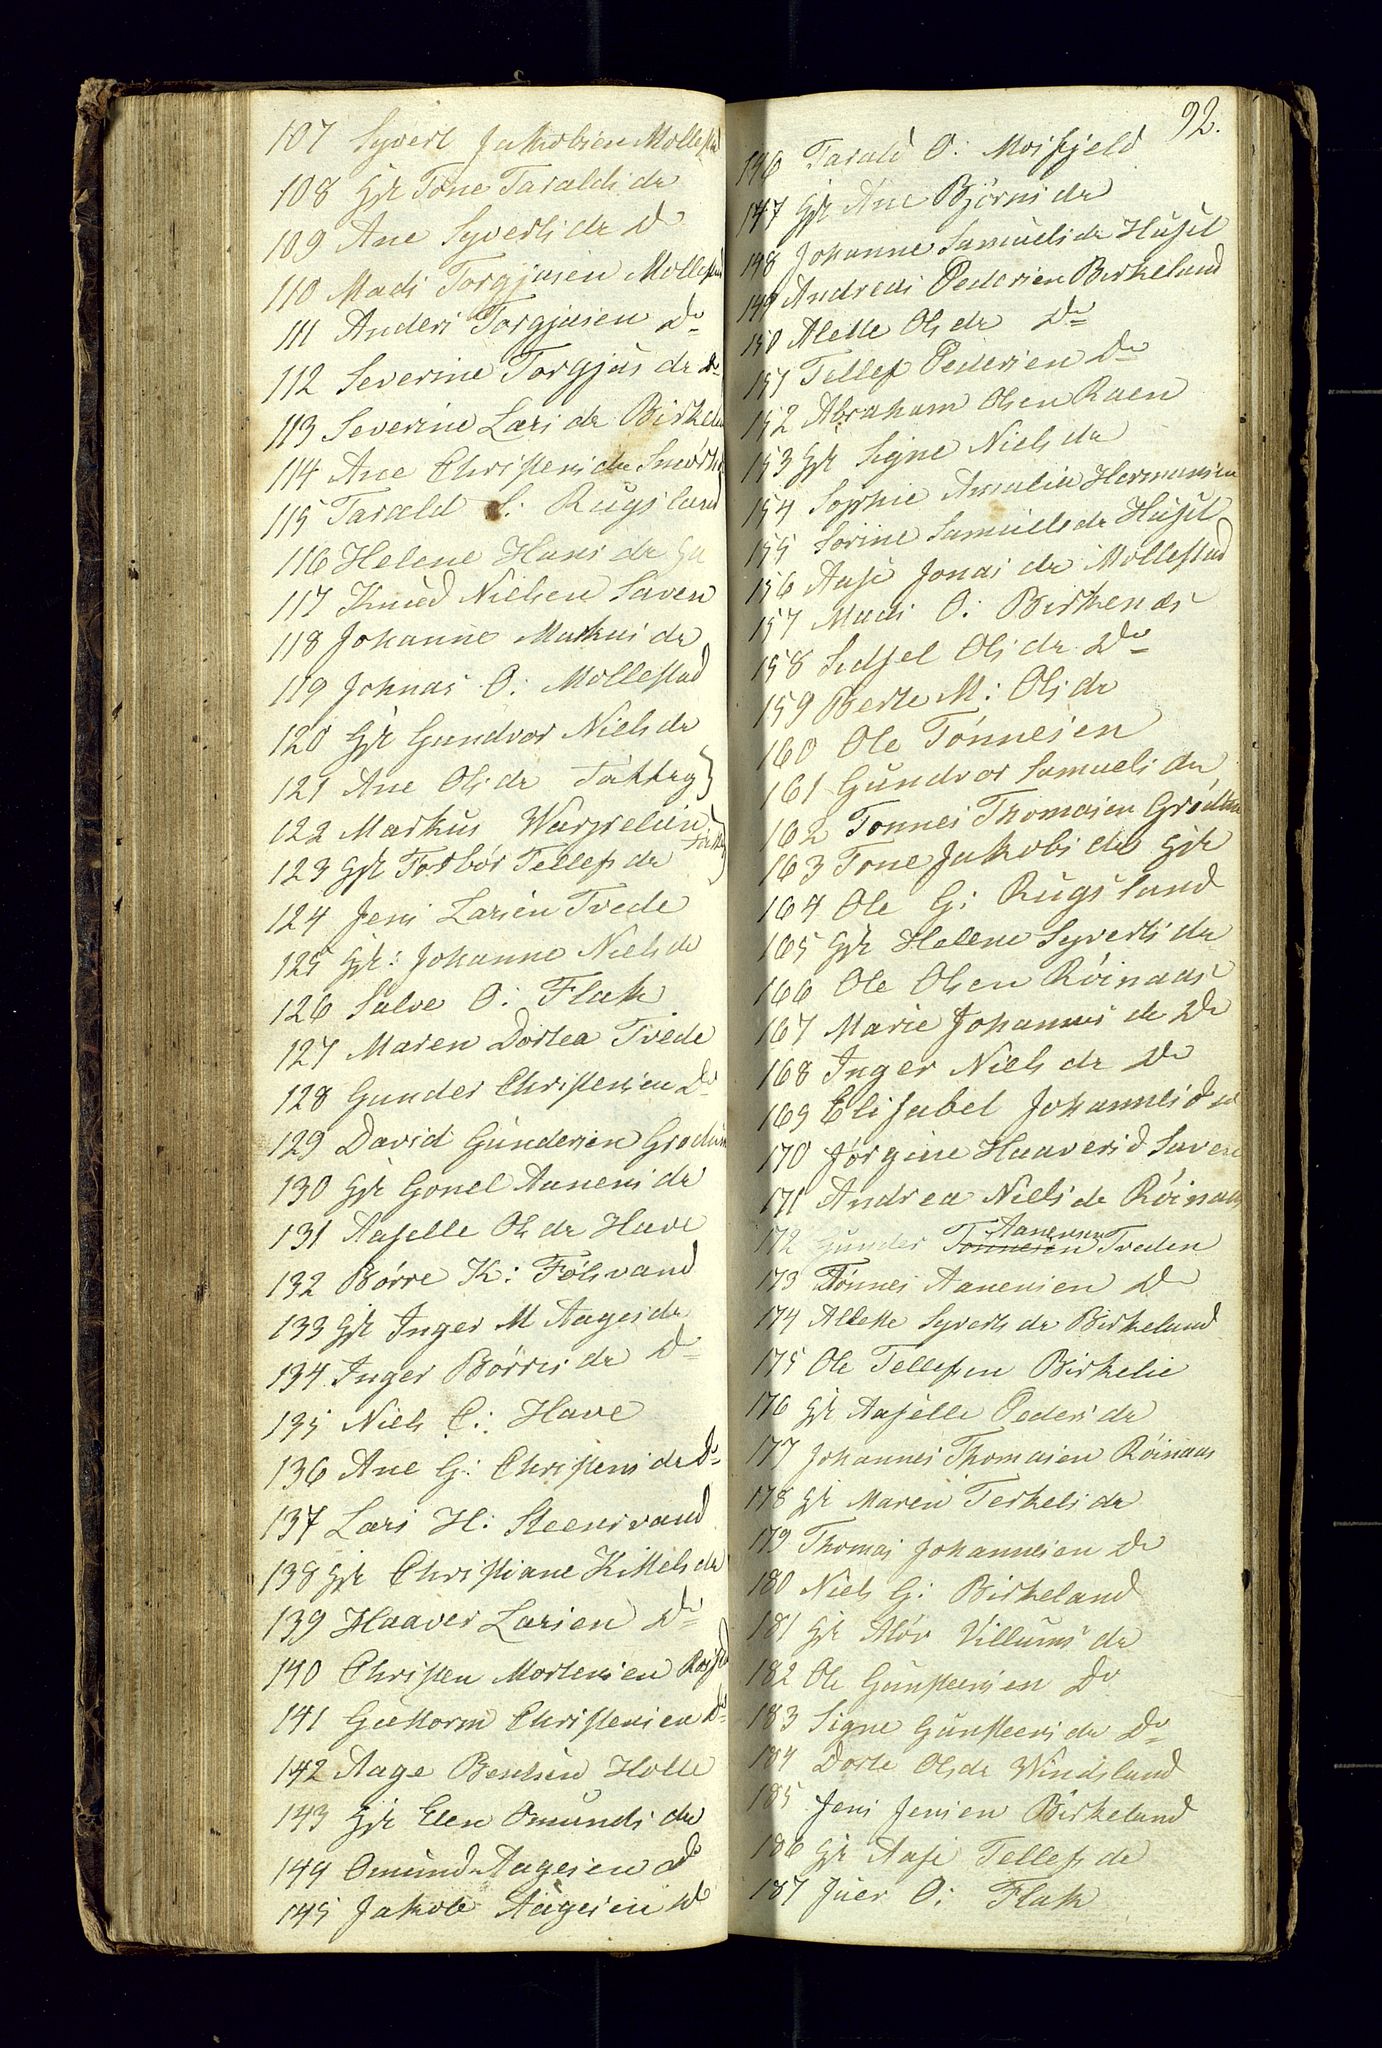 107 Syvert Jakobsen Mollestad
108 Gjk Tone Taraldsdr
109 Ane Syvertsdr Do
110 Mads Torgjusen Mollestad
111 Anders Torgjusen Do
112 Severine Torgjusdr Do
113 Severine Larsdr Birkeland
114 Ane Christensdr
115 Tarald S: Rugsland
116 Helene Hansdr
117 Knud Nielsen Saven
118 Johanne Markusdr
119 Johnas O: Mollestad
120 Gjk Gundvor Nielsdr
121 Ane Olsdr
122 Markus
123 Gjk Torbør Tellefsdr
124 Jens Larsen Tvede
125 Gjk: Johanne Nielsdr
126 Salve O: Flak
127 Maren Dortea Tvede
128 Gunder Christensen Do
129 David Gundersen
130 Gjk Gonel Aanensdr
131 Aaselle Olsdr Have
132 Børre K: Følsvand
133 Gjk Inger M Aagesdr
134 Inger Børresdr Do
135 Niels C: Have
136 Ane G: Christensdr Do
137 Lars H: Steensvand
138 Gjk Christiane Kittelsdr
139 Haaver Larsen Do
140 Christen Mortensen
141 Guttorm Christensen Do
142 Aage Bentsen Holte
143 Gjk Elen Omundsdr
144 Omund Aagesen Do
145 Jakob Aagesen Do
92.
146 Tarald O: Mosfjeld
147 Gjk Ane Bjørnsdr
148 Johanne Samuelsdr Huset
149 Andreas Pedersen Birkeland
150 Alette Olsdr Do
151 Tellef Pedersen Do
152 Abraham Olsen Raen
153 Gjk Signe Nielsdr
154 Sophie Amalia Hermansen
155 Sorine Samuelsdr Huset
156 Aase Jonasdr Mollestad
157 Mads O: Birkenæs
158 Sidsel Olsdr Do
159 Berte M: Olsdr
160 Ole Tønnesen
161 Gundvor Samuelsdr
162 Tønnes Thomasen
163 Tone Jakobsdr Gjk
164 Ole G: Rugsland
165 Gjk Helene Syvertsdr
166 Ole Olsen Røinaas
167 Marie Johannesdr Do
168 Inger Nielsdr Do
169 Elisabet Johannesd Do
170 Jørgine Haaversd Saven
171 Andrea Nielsdr Røinaas
172 Gunder Tønnesen Aanensen Tveden
173 Tønnes Aanensen Do
174 Allette Syvertsdr Birkeland
175 Ole Tellefsen Birkelie
176 Gjk Aaselle Pedersdr
177 Johannes Thomasen Røinaas
178 Gjk Maren Terkelsdr
179 Thomas Johannesen Do
180 Niels G: Birkeland
181 Gjk Alør Villumsdr
182 Ole Gunsteensen Do
183 Signe Gunsteensdr Do
184 Dorte Olsdr Windsland
185 Jens Jensen Birkeland
186 Gjk Aase Tellefsdr
187 Juer O: Flak